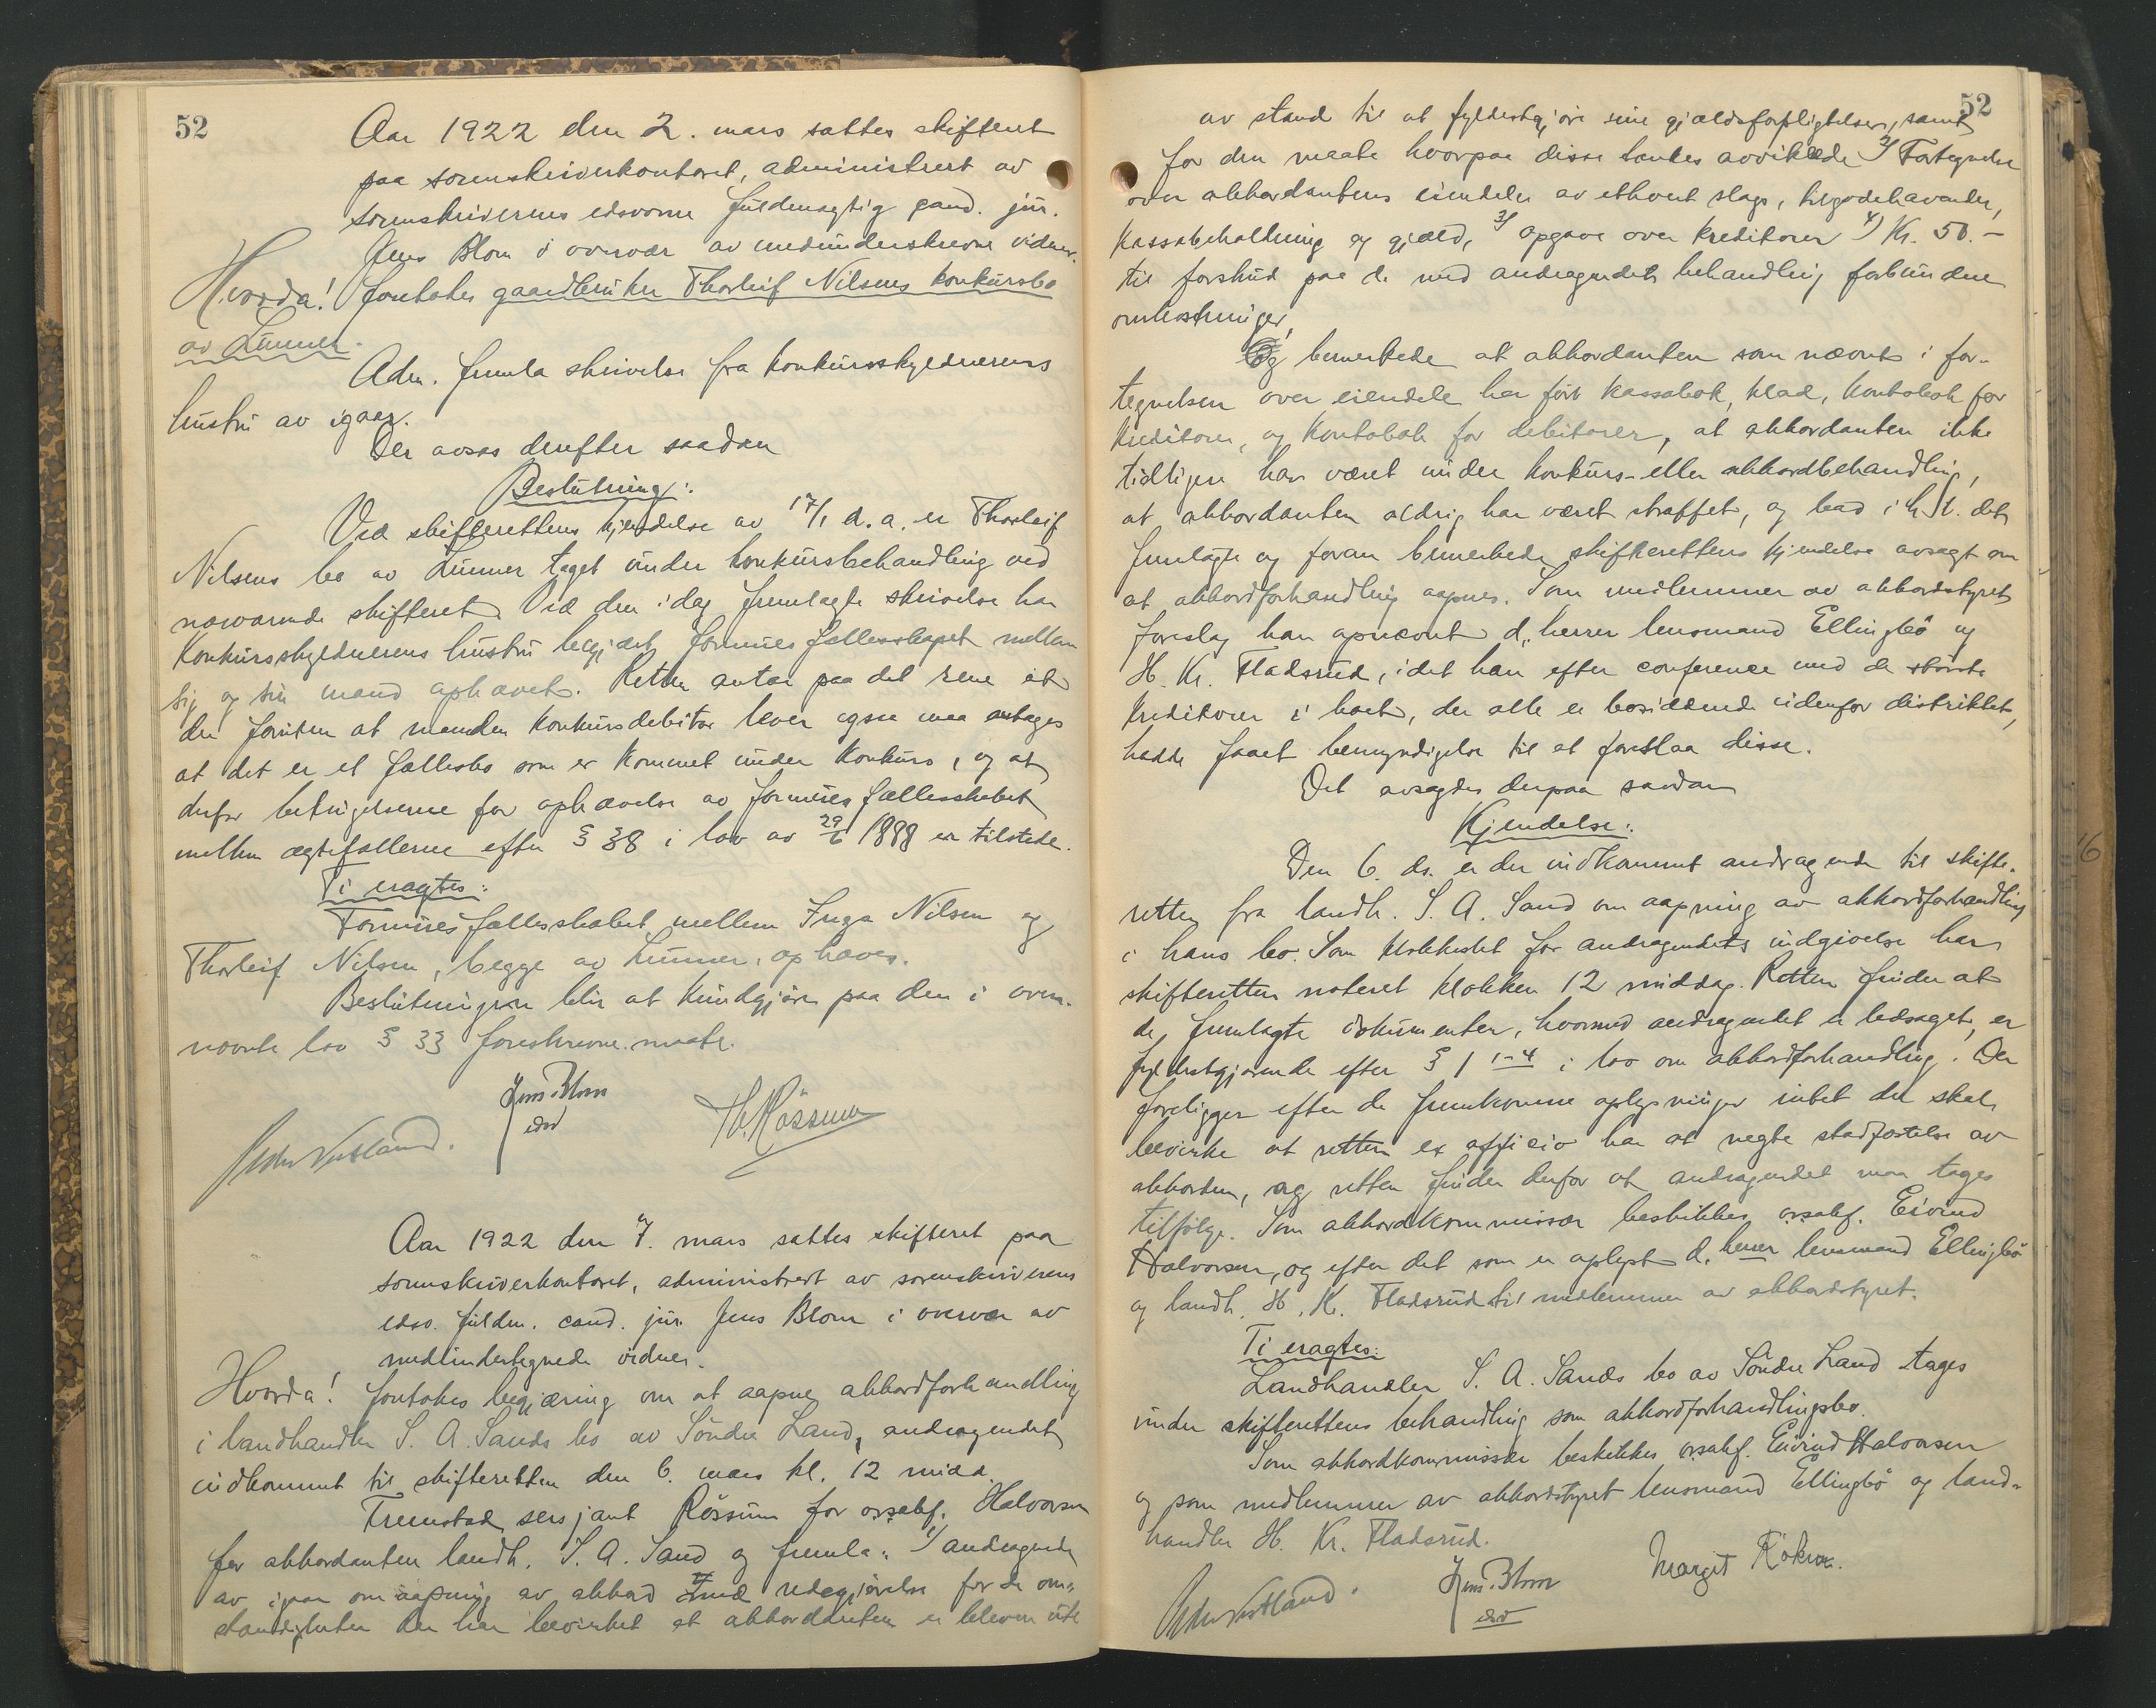 52
Aar 1922 den 2. mars sattes skifteret
paa sorenskriverkontoret, administrert av
sorenskriverens edsvorne fuldmægtig cand. jur.
Jens Blom i overvær av medunderskrevne vidner.
Hvorda! foretokes gaardbruker Thorleif Nilsens konkursbo
av Lunner.
Adm. fremla skrivelse fra konkursskyldnerens
hustru av igaar.
Der avsas derefter saadan
Beslutning:
Ved skifterettens kjendelse av 17/1 d.a. er Thorleif
Nilsens bo av Lunner taget under konkursbehandling ved
nærværende skifteret. Ved den idag fremlagte skrivelse har
konkursskyldnerens hustru begjært formuesfællesskapet mellem
sig og sin mand ophævet. Retten antar paa det rene at
der foruten at manden konkursdebitor lever ogsaa maa antages
at det er et fællesbo som er kommet under konkurs, og at
derfor betingelserne for ophævelse av formuesfællesskabet
mellem ægtefællerne efter § 38 i lov av 29/6 1888 er tilstede.
Ti eragtes:
Formuesfællesskabet mellem Inga Nilsen og
Thorleif Nilsen, begge av Lunner, ophæves.
Beslutningen blir at kundgjøre paa den i oven-
nævnte lov § 33 foreskrevne maate.
Jens Blom
edsv
Th. Røssum
Aar 1922 den 7. mars sattes skifteret paa
sorenskriverkontoret, administrert av sorenskriverens
edsv. fuldm. cand. jur. Jens Blom i overvær av
medundertegnede vidner.
Hvorda! foretokes begjæring om at aapne akkordforhandling
i landhandler S. A. Sands bo av Søndre Land, andragendet
indkommet til skifteretten den 6. mars kl. 12 midd.
Fremstod sersjant Røssum for o.r.sakf. Halvorsen
for akkordanten landh. S. A. Sand og fremla: 1) andragende
av igaar om aapning av akkord med redegjørelse for de om-
stændigheter der har bevirket at akkordanten er bleven ute
52
av stand til at fyldestgjøre sine gjældsforpligtelser, samt
for den maate hvorpaa disse tænkes avviklede 2) Fortegnelse
over akkordantens eiendeler av ethvert slags, tilgodehavender,
kassabeholdning og gjæld, 3) opgave over kreditorer 4) Kr. 50.-
til forskud paa de med andragendets behandling forbundne
omkostninger,
Og bemerkede at akkordanten som nævnt i for-
tegnelsen over eiendele har ført kassabok, klad, kontobok for
kreditorer, og kontobok for debitorer, at akkordanten ikke
tidligere har været under konkurs- eller akkordbehandling,
at akkordanten aldrig har været straffet, og bad i h.t. det
fremlagte og foran bemerkede skifterettens kjendelse avsagt om
at akkordforhandling aapnes. Som medlemmer av akkordstyret
foreslag han opnævnt d. herrer lensmand Ellingbø og
H. Kr. Fladsrud, idet han efter conference med de største
kreditorer i boet, der alle er bosiddende utenfor distriktet,
hadde faaet bemyndigelse til at foreslaa disse.
Det avsagdes derpaa saadan
Kjendelse:
Den 6. ds. er der indkommet andragende til skifte-
retten fra landh. S. A. Sand om aapning av akkordforhandling
i hans bo. Som klokkeslet for andragendets indgivelse har
skifteretten noteret klokken 12 middag. Retten finder at
de fremlagte dokumenter, hvormed andragendet er ledsaget, er
fyldestgjørende efter § 1 1-4 i lov om akkordforhandling. Der
foreligger efter de fremkomne oplysninger intet der skal
bevirke at retten ex officio har at negte stadfæstelse av
akkorden, og retten finder derfor at andragendet maa tages
tilfølge. Som akkordkommissær beskikkes o.r.sakf. Eivind
Halvorsen, og efter det som er oplyst d. herrer lensmand Ellingbø
og landh. H. Kr. Fladsrud til medlemmer av akkordstyret.
Ti eragtes:
Landhandler S. A. Sands bo av Søndre Land tages
under skifterettens behandling som akkordforhandlingsbo.
Som akkordkommissær beskikkes o.r.sakf. Eivind Halvorsen
og som medlemmer av akkordstyret lensmand Ellingbø og land-
handler H. Kr. Fladsrud.
Jens Blom
edsv
Margit
16